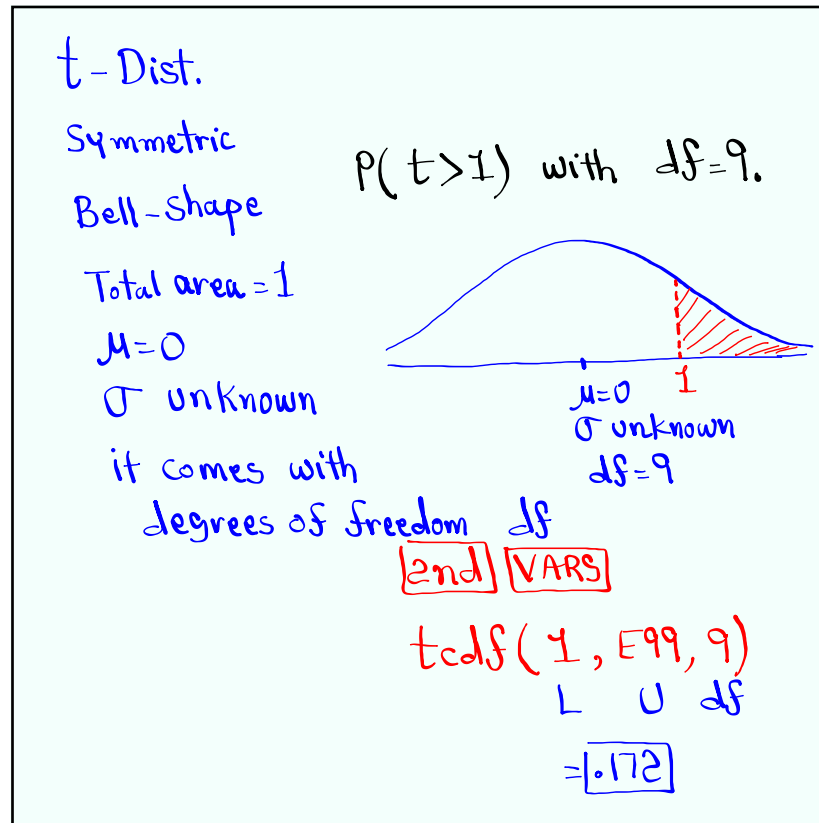 t-Dist.
Symmetric
Bell-Shape
Total area = 1
μ=0
σ unknown
it comes with
degrees of freedom df
P(t>1) with df=9.
1
μ=0
σ unknown
df=9
2nd VARS
tcdf(1, E99, 9)
L U df
= .172